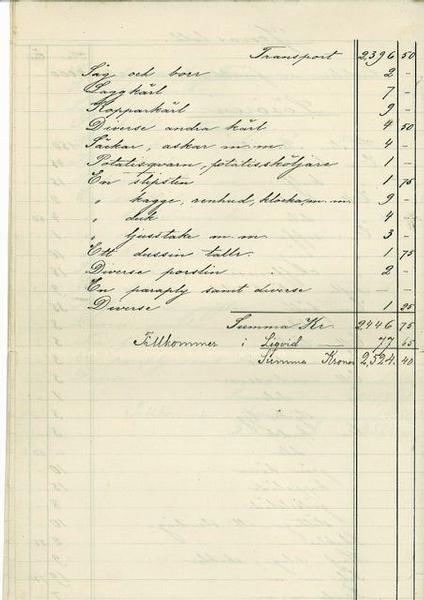 Transport 2,396 50
Såg och borr 2 -
Laggkärl 7 -
Kopparkärl 9 -
Diverse andra kärl 4 50
Säckar, askar m.m. 4 -
Potatisqvarn, potatissköljare 1 -
En slipsten 1 75
" kagge, renhud, klocka, m.m. 9 -
" duk 4 -
" ljusstake m.m. 3 -
Ett dussin tallr. 1 75
Diverse porslin 2 -
En paraply samt diverse
Diverse 1 25
Summa Kr. 2446 75
Tillkommer i Liqvid 77 65
Summa Kronor 2,524. 40